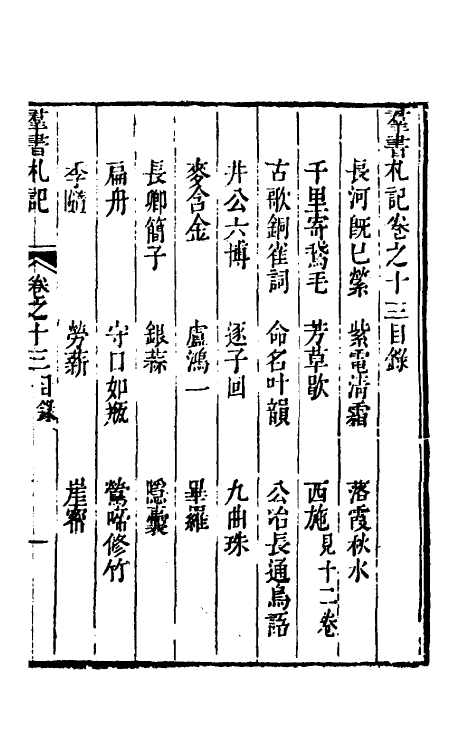 羣書札記卷之十三目錄
長河既已縈 紫電清霜 落霞秋水
千里寄鵞毛 芳草歇 西施見十二卷
古歌銅雀詞 命名叶韻 公冶長通鳥語
井公六博 逐子回 九曲珠
麥含金 盧鴻一 畢羅
長卿簡子 銀蒜 隱囊
扁舟 守口如瓶 鶯啼修竹
勞薪
羣書札記 卷之十三目錄 一